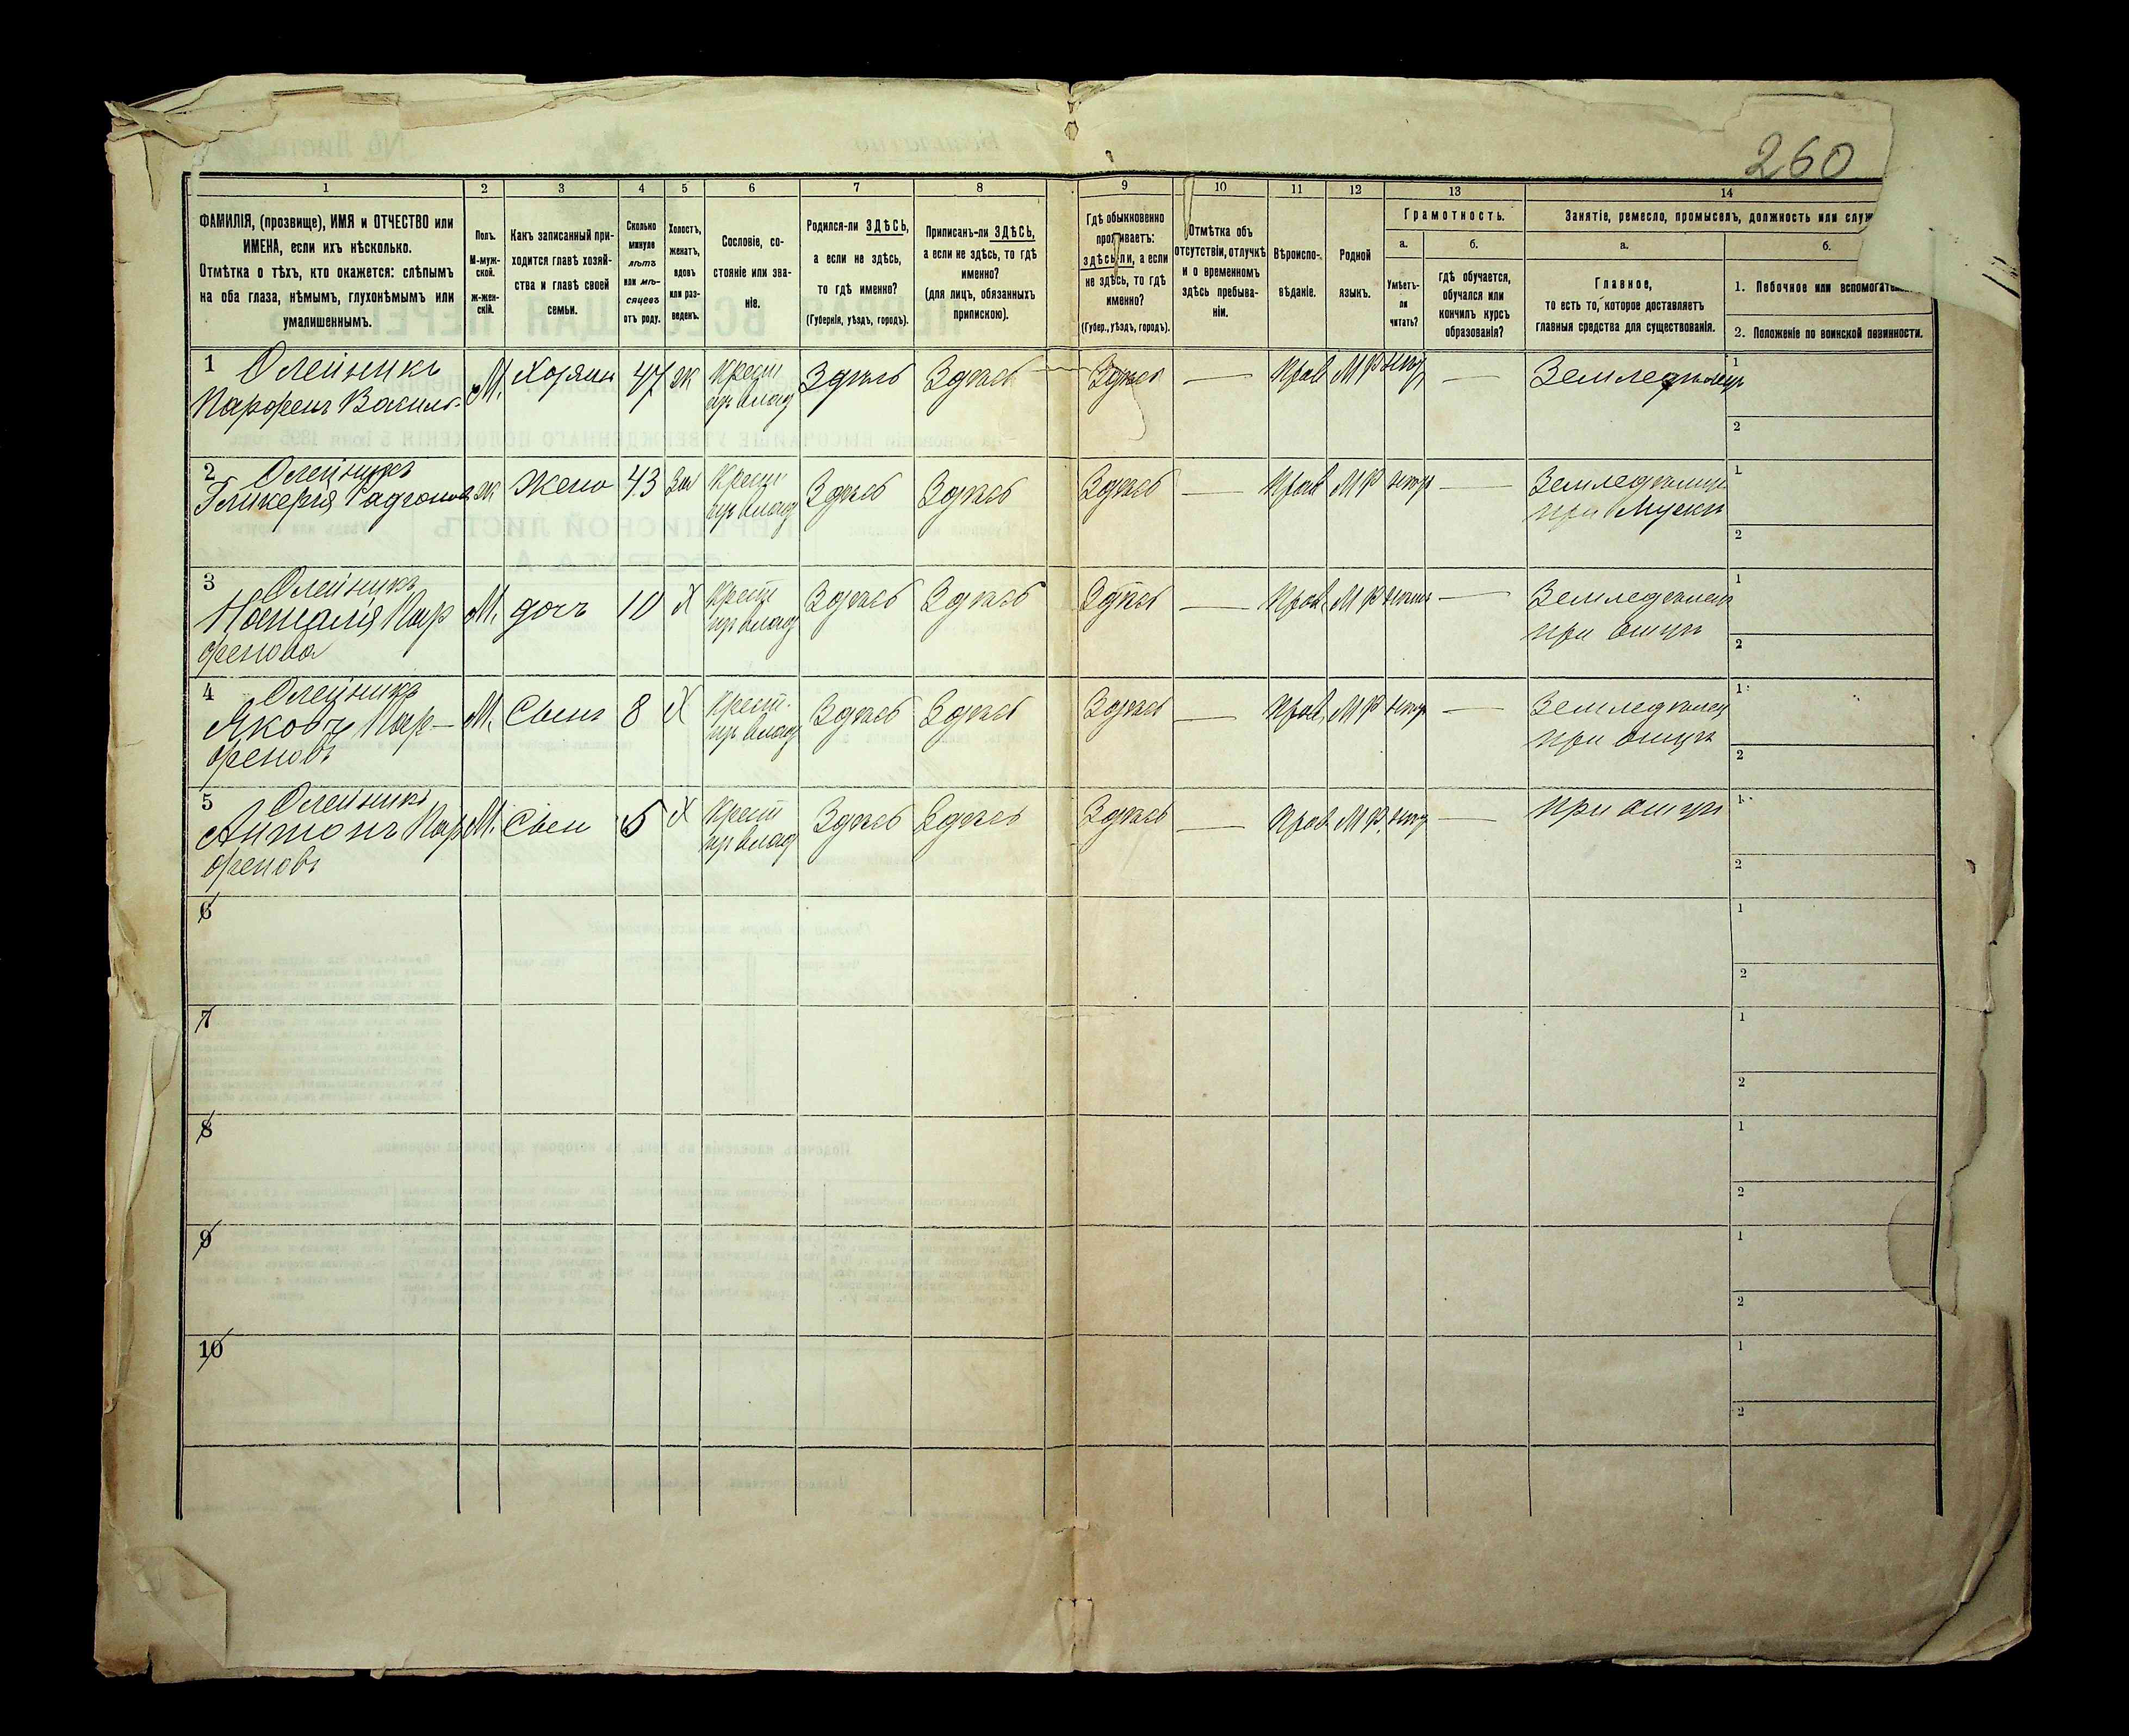 260
1 2 3 4 5 6 7 8 9 10 11 12 13 14
ФАМИЛІЯ, (прозвище), ИМЯ и ОТЧЕСТВО или
ИМЕНА, если ихъ нѣсколько.
Отмѣтка о тѣхъ, кто окажется: слѣпымъ
на оба глаза, нѣмымъ, глухонѣмымъ или
умалишеннымъ.
Полъ.
М-муж-
ской.
ж-жен-
скій.
Какъ записанный при-
ходится главѣ хозяй-
ства и главѣ своей
семьи.
Сколько
минуло
лѣтъ
или мѣ-
сяцевъ
отъ роду.
Холостъ,
женатъ,
вдовъ
или раз-
веденъ.
Сословіе, со-
стояніе или зва-
ніе.
Родился-ли ЗДѢСЬ,
а если не здѣсь,
то гдѣ именно?
(Губернія, уѣздъ, городъ).
Приписанъ-ли ЗДѢСЬ,
а если не здѣсь, то гдѣ
именно?
(для лицъ, обязанныхъ
припискою).
Гдѣ обыкновенно
проживаетъ:
здѣсь-ли, а если
не здѣсь, то гдѣ
именно?
(Губер., уѣздъ, городъ).
Отмѣтка объ
отсутствіи, отлучкѣ
и о временномъ
здѣсь пребыва-
ніи.
Вѣроиспо-
вѣданіе.
Родной
языкъ.
Грамотность.
а.
Умѣетъ-
ли
читать?
б.
гдѣ обучается,
обучался или
кончилъ курсъ
образованія?
Занятіе, ремесло, промыселъ, должность или служ
а.
Главное,
то есть то, которое доставляетъ
главныя средства для существованія.
б.
1. Побочное или вспомогател
2. Положеніе по воинской повинности.
1 Олейникъ М. Хозяин 47 ж Крест Здѣсь Здѣсь Здѣсь — Прав МР — Земледѣлецъ 1
Парфенъ Василь. влад 2
2 Олейникъ ж Жена 43 Зам Крест Здѣсь Здѣсь Здѣсь — Прав МР — 1
Гликерія влад при Мужѣ 2
3 Олейникъ М. дочъ 10 Х Крест Здѣсь Здѣсь Здѣсь — Прав МР — 1
Наталія Пар влад при отцѣ
фенова 2
4 Олейникъ М. Сынъ 8 Х Крест. Здѣсь Здѣсь Здѣсь — Прав МР — 1
Яковъ Пар- влад при отцѣ
феновъ 2
5 Олейникъ М. Сын 5 Х Крест Здѣсь Здѣсь Здѣсь — Прав МР — при отцѣ 1
Антонъ Пар влад
феновъ 2
6 1
2
7 1
2
8 1
2
9 1
2
10 1
2